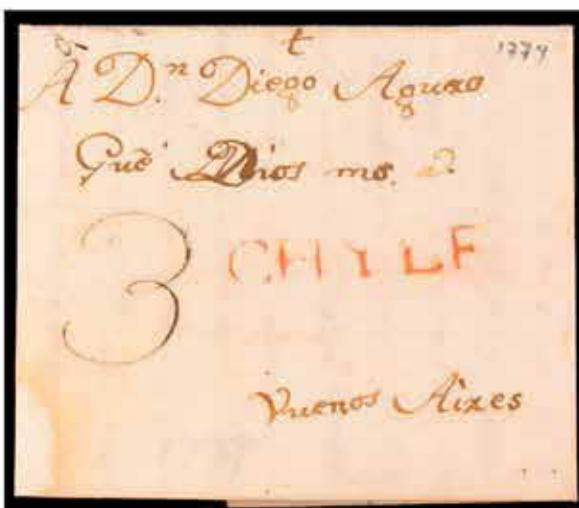 1774
A D.n Diego Aguxo
Gue Dios ms. a.
3 CHYLE
Vuenos Aixes